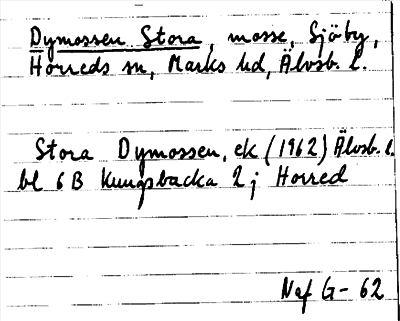 Dymossen Stora, mosse, Sjöby,
Horreds sn, Marks hd, Älvsb. l.
Stora Dymossen, ek (1962) Älvsb. l.
bl 6 B Kungsbacka 2 j Horred
Naf G - 62